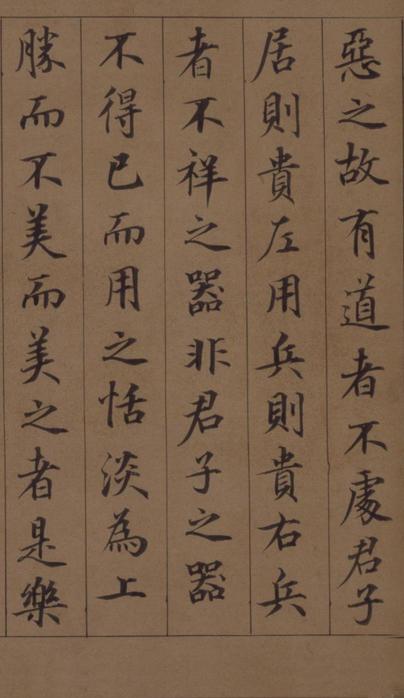 惡之故有道者不處君子
居則貴左用兵則貴右兵
者不祥之器非君子之器
不得已而用之恬淡為上
勝而不美而美之者是樂